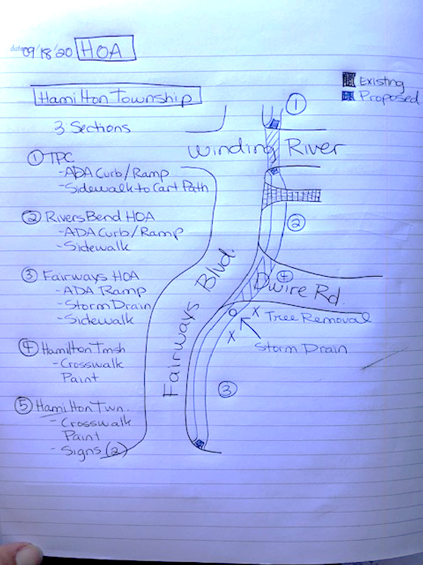 date 09/18/20 HOA
Existing
Proposed
Hamilton Township
3 Sections
① TPC
- ADA Curb/Ramp
- Sidewalk to Cart Path
② RiversBend HOA
- ADA Curb/Ramp
- Sidewalk
③ Fairways HOA
- ADA Ramp
- Storm Drain
- Sidewalk
④ Hamilton Tmsh
- Crosswalk
Paint
⑤ Hamilton Twn.
- Crosswalk
Paint
- Signs (2)
①
Winding River
②
Fairways Blvd.
④
Dwire Rd
x Tree Removal
x
Storm Drain
③